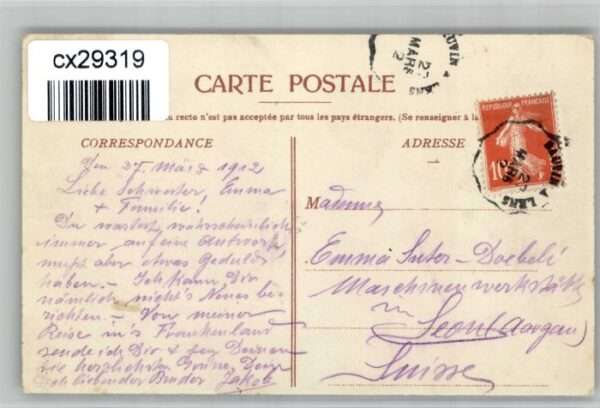 cx29319
CARTE POSTALE
recto n'est pas acceptée par tous les pays étrangers. (Se renseigner à la
CORRESPONDANCE
ADRESSE
Den 27. März 1912
Liebe Schwester, Emma
& Familie!
Du wartest wahrscheinlich
immer auf eine Antwort,
mußt aber etwas Geduld
haben. – Ich kann Dir
nämlich nicht's Neues be-
richten. – Von meiner
Reise in's Frankenland
sende ich Dir &
die herzlichsten Grüße, Dein
Dich liebender Bruder Jakob
Madame
Emma Suter-Doebeli
Maschinenwerkstätte
in Seon (Aargau)
Suisse
REPUBLIQUE FRANÇAISE
10
LENS
MARS
A LENS
MARS